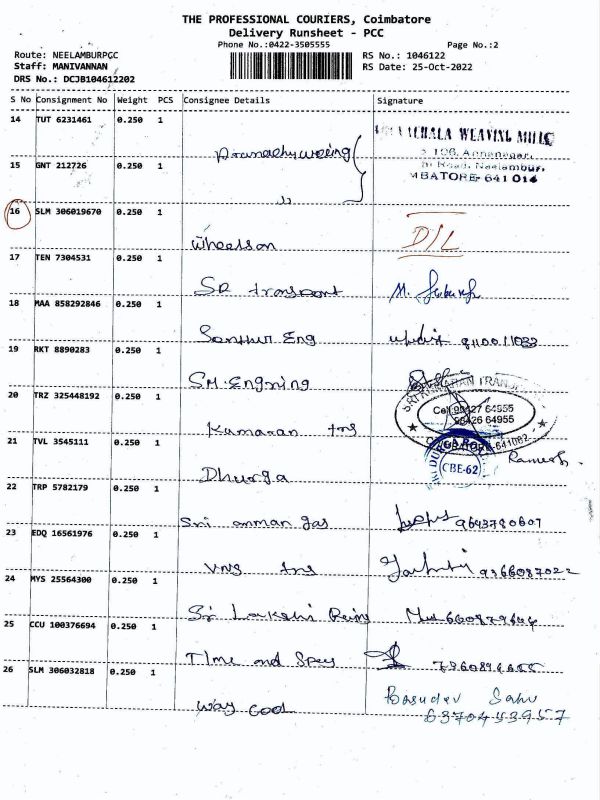 THE PROFESSIONAL COURIERS, Coimbatore
Delivery Runsheet - PCC
Phone No.:0422-3505555
Page No.:2
Route: NEELAMBURPCC
RS No.: 1046122
Staff: MANIVANNAN
RS Date: 25-Oct-2022
DRS No.: DCJB104612202
S No Consignment No Weight PCS Consignee Details Signature
14 TUT 6231461 0.250 1
WEAVING MILLS
106, Annanagar,
Road, Neelambur,
15 GNT 212726 0.250 1
MBATORE-641 014
16 SLM 306019670 0.250 1
Wheelson D/L
17 TEN 7304531 0.250 1
SR Transport M.
18 MAA 858292846 0.250 1
Santhur Eng
19 RKT 8890283 0.250 1
SM.Engning
20 TRZ 325448192 0.250 1
SRI KUMARAN TRAN
Cell 98427 64955
98426 64955
641062
Kumaran tns
21 TVL 3545111 0.250 1
DURGA
CBE-62
Dhurga Ramesh
22 TRP 5782179 0.250 1
Sri amman gas 9643780607
23 EDQ 16561976 0.250 1
VNS tns 9366087022
24 MYS 25564300 0.250 1
Sri Lakshi
25 CCU 100376694 0.250 1
Time and Spey
26 SLM 306032818 0.250 1
Way Cool Basudev Sahu
6370453957